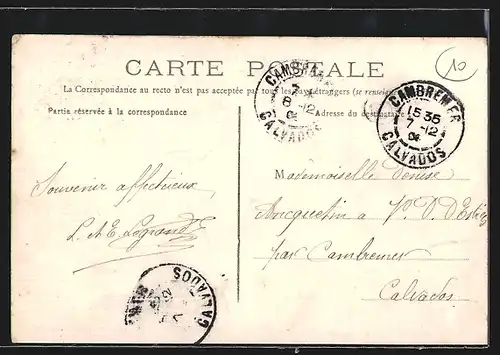 CARTE POSTALE
La Correspondance au recto n'est pas acceptée par tous les pays étrangers (se renseign
Partie réservée à la correspondance
Adresse du destinataire
CAMBREMER
8 -12
CALVADOS
CAMBREMER
15 35
7 -12
CALVADOS
10
Souvenir affectueux
L. & E. Legrand
Mademoiselle Denise
Ancquetin a V. D. d'
par Cambremer
Calvados
CALVADOS